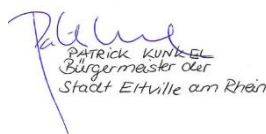 PATRICK KUNKEL
Bürgermeister der
Stadt Eltville am Rhein